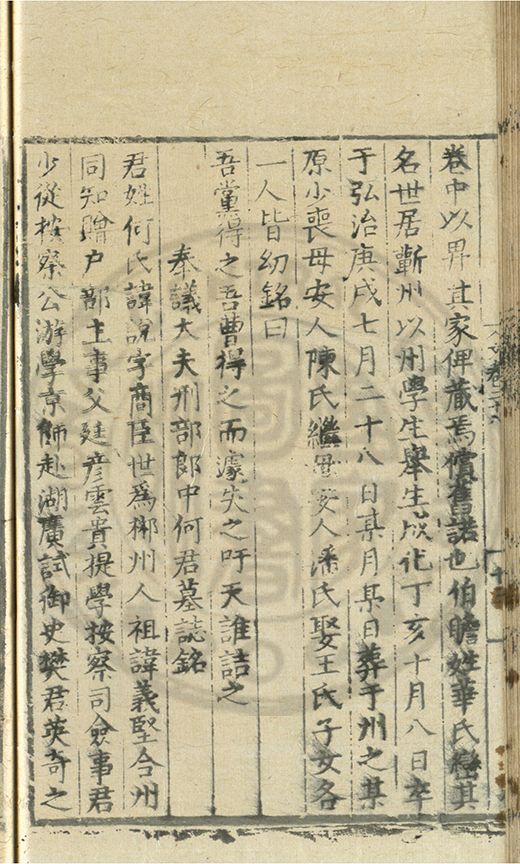 卷中以畀其家俾藏焉償舊諾也伯瞻姓華氏巒其
名世居蘄州以州學生舉生成化丁亥十月八日卒
于弘治庚戌七月二十八日某月某日葬于州之某
原少喪母安人陳氏繼母安人潘氏娶王氏子女各
一人皆幼銘曰
吾黨得之吾曹得之而遽失之吁天誰詰之
奉議大夫刑部郎中何君墓誌銘
君姓何氏諱說字商臣世爲郴州人祖諱義堅合州
同知贈户部主事父廷彦雲貴提學按察司僉事君
少從按察公游學京師赴湖廣試御史樊君英奇之